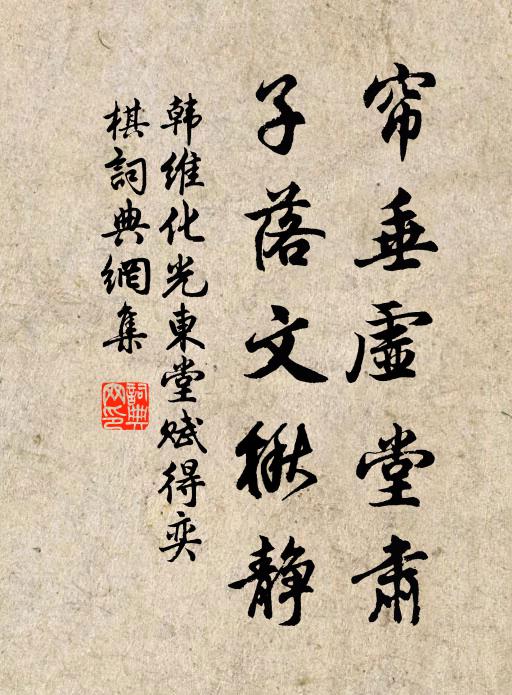 帘垂虚堂肃
子落文楸静
韩维化光東堂赋得奕
棋詞典網集
詞典
网印